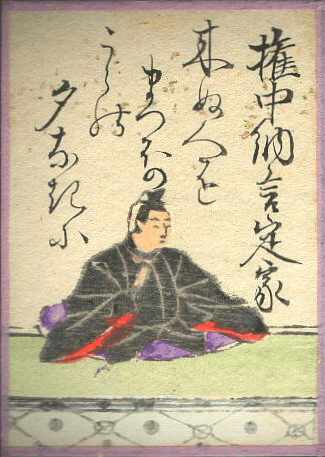 権中納言定家
来ぬ人を
まつほの
うらの
夕なぎに